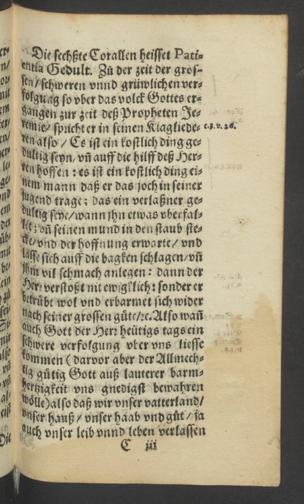 Die sechßte Corallen heisset Pati-
entia Gedult. Zů der zeit der gros-
sen/ schweren vnnd grüwlichen ver-
folgung so vber das volck Gottes er-
gangen zur zeit deß Propheten Je-
remie/ spricht er in seinen Klagliede-
ren also/ Es ist ein kostlich ding ge-
c.3.v.26.
dultig seyn/ vñ auff die hilff deß Her-
ren hoffen: es ist ein kostlich ding ei-
nem mann daß er das joch in seiner
jugend trage: das ein verlaßner ge-
dultig seye/ wann jhn etwas vberfal-
let: vñ seinen mund in den staub ste-
cke/ vnd der hoffnung erwarte/ vnd
lasse sich auff die bagken schlagen/ vñ
jhm vil schmach anlegen: dann der
Herr verstoßt nit ewigklich: sonder er
betrübt wol vnd erbarmet sich wider
nach seiner grossen güte/ ꝛc. Also wañ
auch Gott der Herr heütigs tags ein
schwere verfolgung vber vns liesse
kommen (darvor aber der Allmech-
tig gütig Gott auß lauterer barm-
hertzigkeit vns gnedigst bewahren
wölle) also daß wir vnser vatterland/
vnser hauß/ vnser haab vnd gůt/ ja
auch vnser leib vnnd leben verlassen
C iii